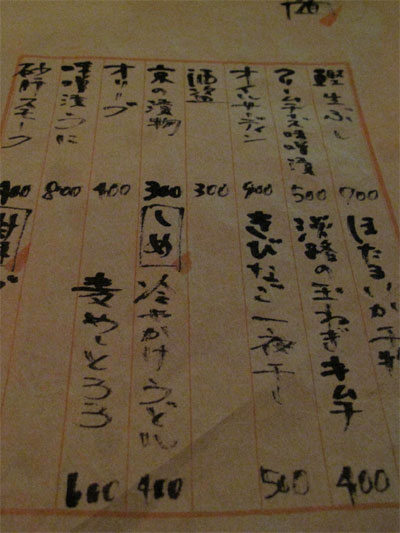 鰹生ぶし 700
クリームチーズ味噌漬 500
オイルサーディン 400
酒盗 300
京の漬物 300
オリーブ 400
味噌漬うに 800
砂肝スモーク 400
ほたるいか干物
淡路の玉ねぎキムチ 400
きびなご一夜干し 500
しめ
冷やかけうどん 400
麦めしとろろ 600